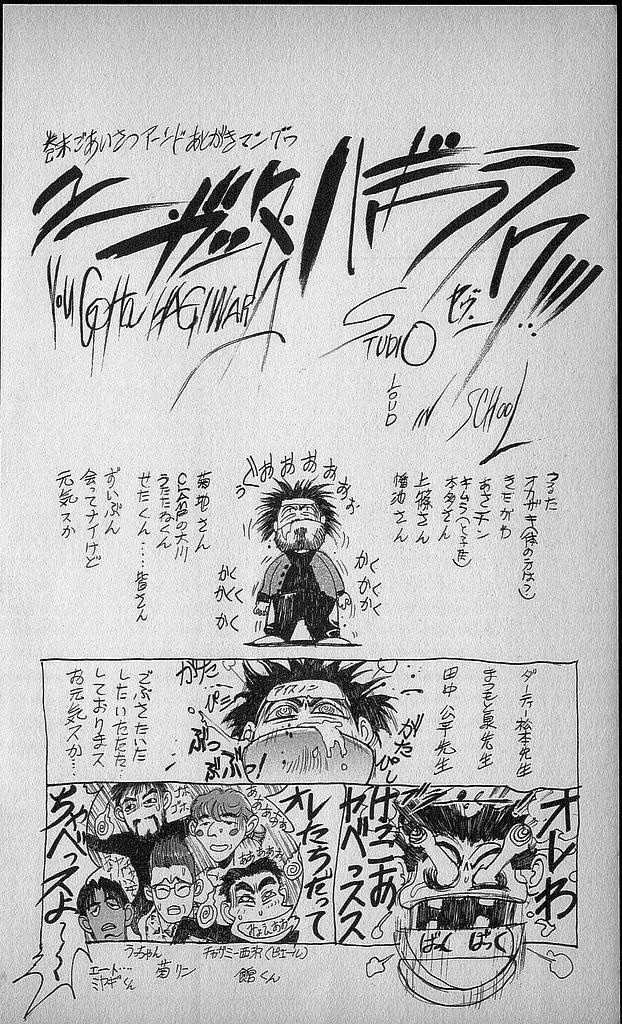 巻末ごあいさつアーンドあとがきマンガ
ユー・ガッタ・ハギワラ
YOU GOTTA HAGIWARA
STUDIO
LOUD
IN SCHOOL
つるた
オカザキ(体の方は?)
きだがわ
あさチン
本多さん
上篠さん
あああああぉぉ
かくかくかく
かくかくかく
菊地さん
CLAMPの大川
うたたねくん
せたくん…皆さん
ずいぶん
会ってナイけど
元気スか
ダーティー松本先生
まつもと泉先生
田中公平先生
がたぴし
アイスノン
がたぴし
ぶっ
ぶぶっ!
ごぶさたいた
したいたたた…
しておりまス
お元気スか…
オレわ
けっこあ
ヤベっスス
ばく ばっく
オレたちだって
ゴホゴホ
ああああ
ちゃべっスよ〜〜
うっちゃん
エート…
ミヤギくん
菊リン
チャーミー西沢(ピエール)
館くん